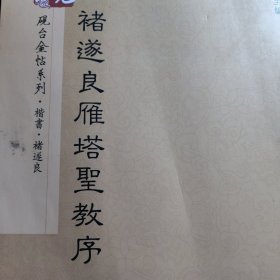 褚遂良雁塔聖教序
砚台金帖系列·楷書·褚遂良